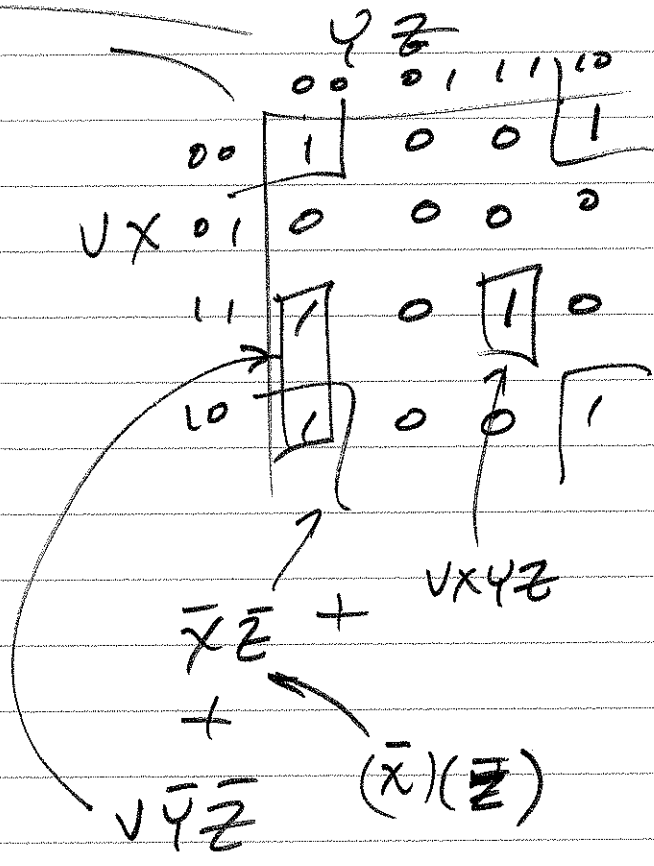 YZ
00 01 11 10
00 1 0 0 1
VX 01 0 0 0 0
11 1 0 1 0
10 1 0 0 1
VXYZ
X̄Z̄ +
+
(X̄)(Z̄)
VȲZ̄